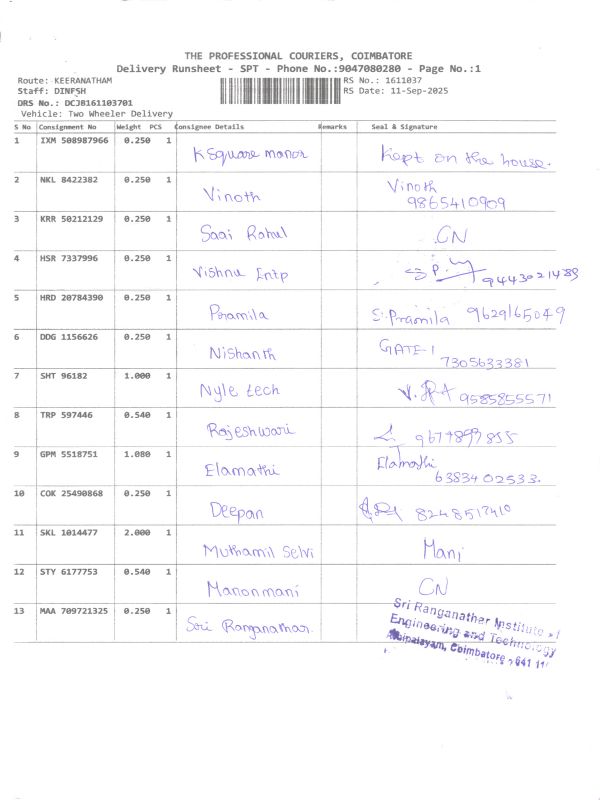 THE PROFESSIONAL COURIERS, COIMBATORE
Delivery Runsheet - SPT - Phone No.:9047080280 - Page No.:1
Route: KEERANATHAM RS No.: 1611037
Staff: DINESH RS Date: 11-Sep-2025
DRS No.: DCJB161103701
Vehicle: Two Wheeler Delivery
S No Consignment No Weight PCS Consignee Details Remarks Seal & Signature
1 IXM 508987966 0.250 1 K Square manor Kept on the house.
2 NKL 8422382 0.250 1 Vinoth Vinoth
9865410909
3 KRR 50212129 0.250 1 Saai Rahul CN
4 HSR 7337996 0.250 1 Vishnu Entp
5 HRD 20784390 0.250 1 Pramila S. Pramila 9629165049
6 DDG 1156626 0.250 1 Nishanth GATE-1
7305633381
7 SHT 96182 1.000 1 Nyle tech 9585855571
8 TRP 597446 0.540 1 Rajeshwari
9 GPM 5518751 1.080 1 Elamathi Elamathi
6383402533.
10 COK 25490868 0.250 1 Deepan
11 SKL 1014477 2.000 1 Muthamil Selvi Mani
12 STY 6177753 0.540 1 Manonmani CN
13 MAA 709721325 0.250 1 Sri Ranganathar
Sri Ranganather Institute of
Engineering and Technology
Coimbatore - 641 110